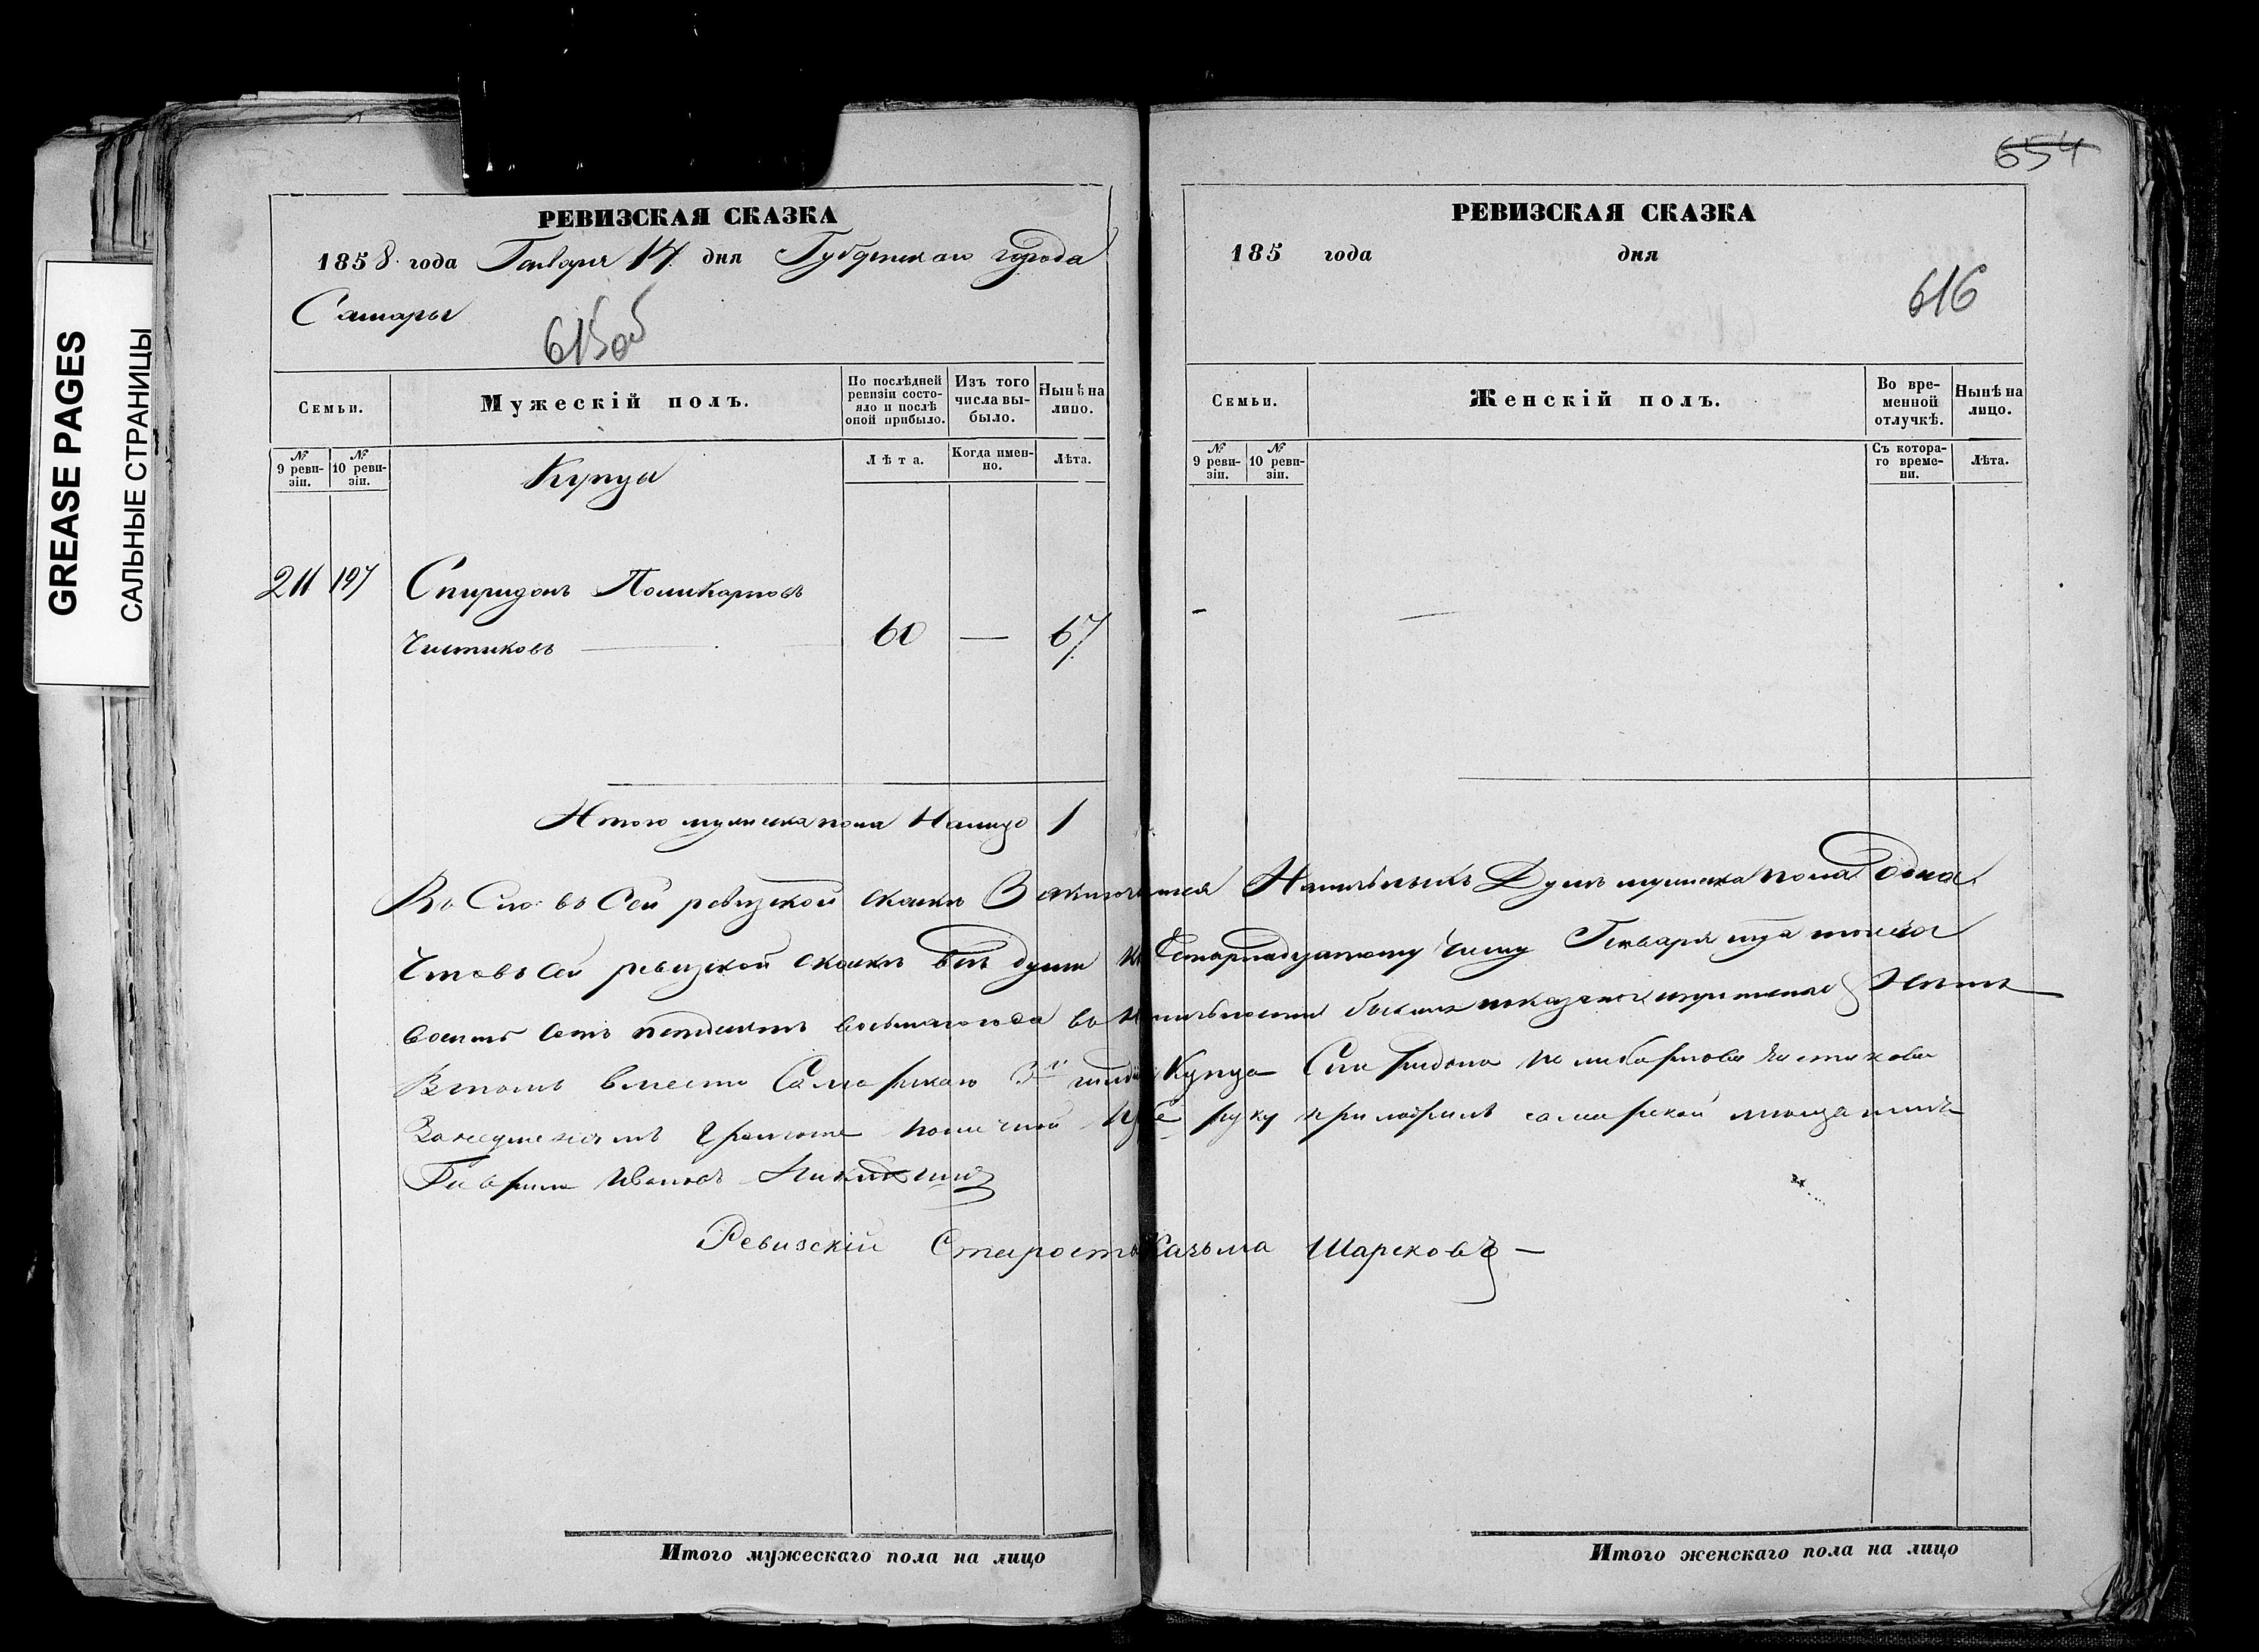 GREASE PAGES
САЛЬНЫЕ СТРАНИЦЫ
РЕВИЗСКАЯ СКАЗКА
1858 года Генваря 14 дня Губернскаго города
Самары
615об
Семьи.
Мужескій полъ.
По послѣдней ревизіи состояло и послѣ оной прибыло.
Изъ того числа выбыло.
Нынѣ на лицо.
№ 9 ревизіи.
№ 10 ревизіи.
Купца
Лѣта.
Когда именно.
Лѣта.
211 197 Спиридонъ Поликарповъ
Чистиковъ 60 — 67
Итого мужеска пола Налицо 1
654
РЕВИЗСКАЯ СКАЗКА
185 года дня
616
Семьи.
Женскій полъ.
Во временной отлучкѣ.
Нынѣ на лицо.
№ 9 ревизіи.
№ 10 ревизіи.
Съ котораго времени.
Лѣта.
въ Сей ревизской скаскѣ Заключается Наличныхъ Душъ мужеска пола одна
Что въ сей ревизской скаскѣ всѣ души Генваря
восемь сотъ пятдесятъ восьмаго года въ показаны и нѣтъ
Въ томъ вместо Самарскаго 3й гильдіи Купца Спиридона Поликарпова Чистикова
грамоте по личной руку приложилъ самарской мещанинъ
Гаврила Ивановъ Никитинъ
Ревизскій Староста Казьма Шарековъ —
Итого мужескаго пола на лицо
Итого женскаго пола на лицо